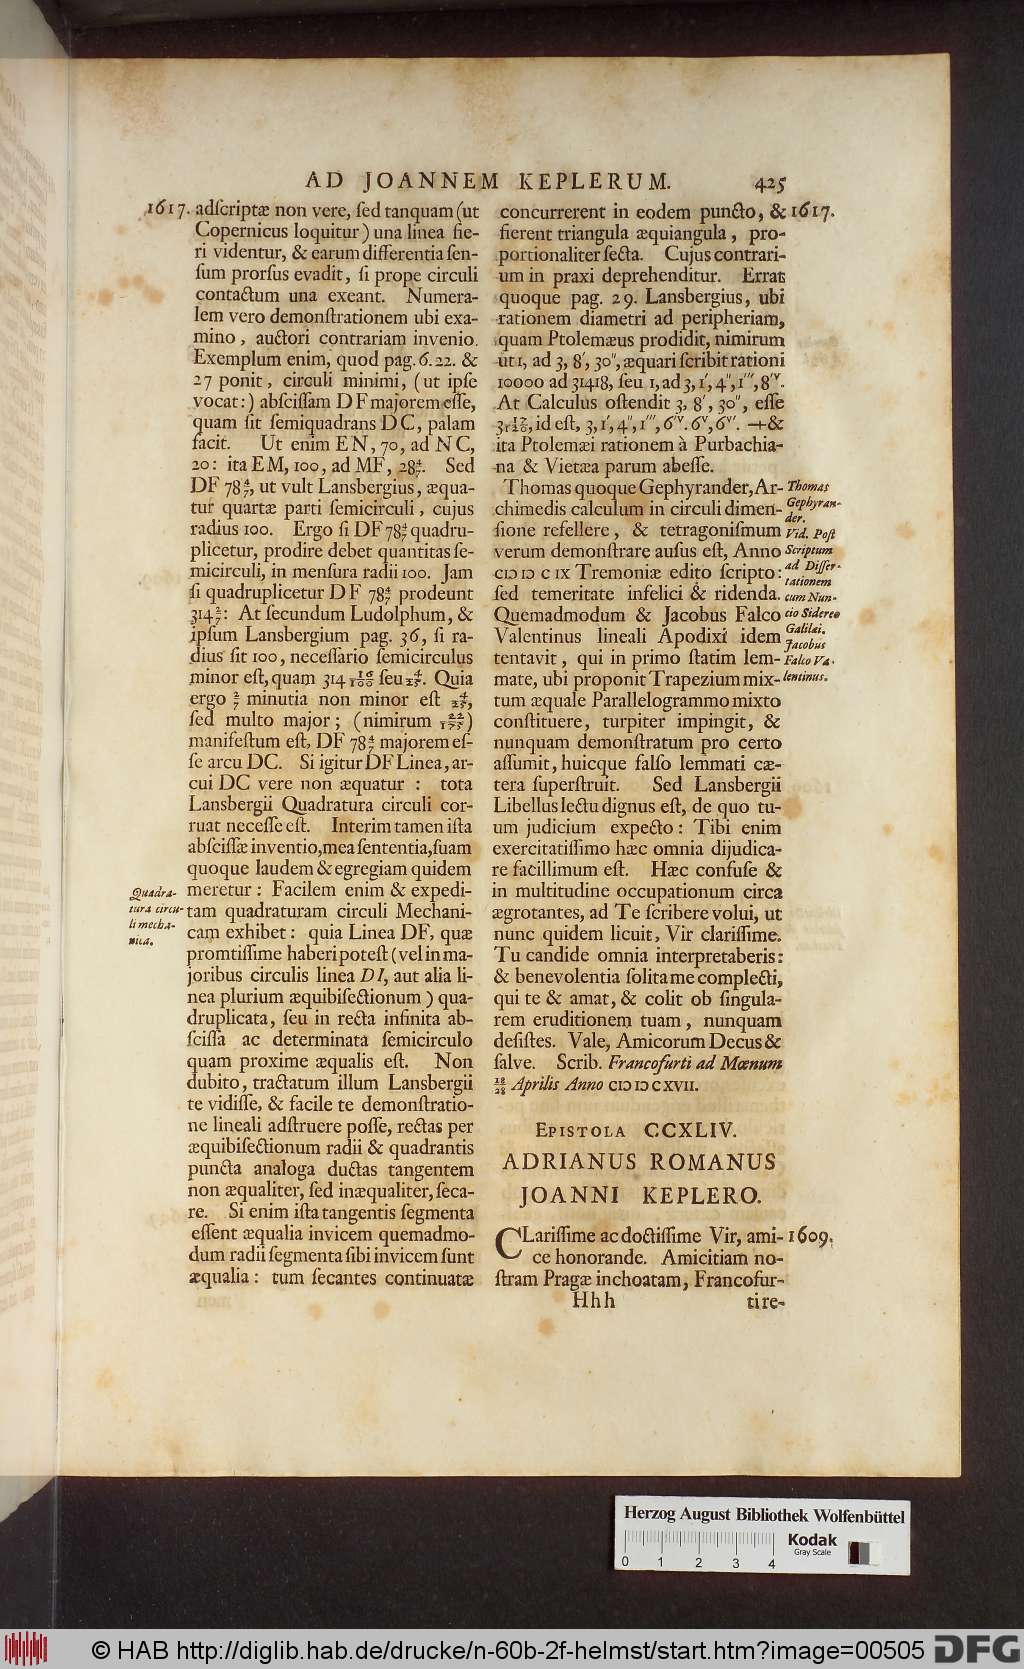 AD JOANNEM KEPLERUM. 425
1617. adſcriptæ non vere, ſed tanquam (ut
Copernicus loquitur) una linea fie-
ri videntur, & earum differentia ſen-
ſum prorſus evadit, ſi prope circuli
contactum una exeant. Numera-
lem vero demonſtrationem ubi exa-
mino, auctori contrariam invenio.
Exemplum enim, quod pag. 6. 22. &
27 ponit, circuli minimi, (ut ipſe
vocat:) abſciſſam DF majorem eſſe,
quam ſit ſemiquadrans DC, palam
facit. Ut enim EN, 70, ad NC,
20: ita EM, 100, ad MF, 28 4/7. Sed
DF 78 4/7, ut vult Lansbergius, æqua-
tur quartæ parti ſemicirculi, cujus
radius 100. Ergo ſi DF 78 4/7 quadru-
plicetur, prodire debet quantitas ſe-
micirculi, in menſura radii 100. Jam
ſi quadruplicetur DF 78 4/7 prodeunt
314 2/7: At ſecundum Ludolphum, &
ipſum Lansbergium pag. 36, ſi ra-
dius ſit 100, neceſſario ſemicirculus
minor eſt, quam 314 16/100 ſeu 4/25. Quia
ergo 2/7 minutia non minor eſt 4/25,
ſed multo major; (nimirum 22/175)
manifeſtum eſt, DF 78 4/7 majorem eſ-
ſe arcu DC. Si igitur DF Linea, ar-
cui DC vere non æquatur: tota
Lansbergii Quadratura circuli cor-
ruat neceſſe eſt. Interim tamen iſta
abſciſſæ inventio, mea ſententia, ſuam
quoque laudem & egregiam quidem
meretur: Facilem enim & expedi-
tam quadraturam circuli Mechani-
cam exhibet: quia Linea DF, quæ
promtiſſime haberi poteſt (vel in ma-
joribus circulis linea DI, aut alia li-
nea plurium æquibiſectionum) qua-
druplicata, ſeu in recta infinita ab-
ſciſſa ac determinata ſemicirculo
quam proxime æqualis eſt. Non
dubito, tractatum illum Lansbergii
te vidiſſe, & facile te demonſtratio-
ne lineali adſtruere poſſe, rectas per
æquibiſectionum radii & quadrantis
puncta analoga ductas tangentem
non æqualiter, ſed inæqualiter, ſeca-
re. Si enim iſta tangentis ſegmenta
eſſent æqualia invicem quemadmo-
dum radii ſegmenta ſibi invicem ſunt
æqualia: tum ſecantes continuatæ
Quadra-
tura circu-
li mecha-
nica.
concurrerent in eodem puncto, & 1617.
fierent triangula æquiangula, pro-
portionaliter ſecta. Cujus contrari-
um in praxi deprehenditur. Errat
quoque pag. 29. Lansbergius, ubi
rationem diametri ad peripheriam,
quam Ptolemæus prodidit, nimirum
ut 1, ad 3, 8′, 30″, æquari ſcribit rationi
10000 ad 31418, ſeu 1, ad 3, 1′, 4″, 1‴, 8′ᵛ.
At Calculus oſtendit 3, 8′, 30″, eſſe
3 17/120, id eſt, 3, 1′, 4″, 1‴, 6′ᵛ. 6ᵛ, 6ᵛ′. + &
ita Ptolemæi rationem à Purbachia-
na & Vietæa parum abeſſe.
Thomas quoque Gephyrander, Ar-
chimedis calculum in circuli dimen-
ſione refellere, & tetragoniſmum
verum demonſtrare auſus eſt, Anno
CIↃ IↃ C IX Tremoniæ edito ſcripto:
ſed temeritate infelici & ridenda.
Quemadmodum & Jacobus Falco
Valentinus lineali Apodixi idem
tentavit, qui in primo ſtatim lem-
mate, ubi proponit Trapezium mix-
tum æquale Parallelogrammo mixto
conſtituere, turpiter impingit, &
nunquam demonſtratum pro certo
aſſumit, huicque falſo lemmati cæ-
tera ſuperſtruit. Sed Lansbergii
Libellus lectu dignus eſt, de quo tu-
um judicium expecto: Tibi enim
exercitatiſſimo hæc omnia dijudica-
re facillimum eſt. Hæc confuſe &
in multitudine occupationum circa
ægrotantes, ad Te ſcribere volui, ut
nunc quidem licuit, Vir clariſſime.
Tu candide omnia interpretaberis:
& benevolentia ſolita me complecti,
qui te & amat, & colit ob ſingula-
rem eruditionem tuam, nunquam
deſiſtes. Vale, Amicorum Decus &
ſalve. Scrib. Francofurti ad Mœnum
18/28 Aprilis Anno CIↃ IↃ C XVII.
Thomas
Gephyran-
der.
Vid. Poſt
Scriptum
ad Diſſer-
tationem
cum Nun-
cio Sidereo
Galilæi.
Jacobus
Falco Va-
lentinus.
EPISTOLA CCXLIV.
ADRIANUS ROMANUS
JOANNI KEPLERO.
CLariſſime ac doctiſſime Vir, ami- 1609.
ce honorande. Amicitiam no-
ſtram Pragæ inchoatam, Francofur-
Hhh ti re-
Herzog August Bibliothek Wolfenbüttel
0 1 2 3 4
Kodak
Gray Scale
© HAB http://diglib.hab.de/drucke/n-60b-2f-helmst/start.htm?image=00505 DFG